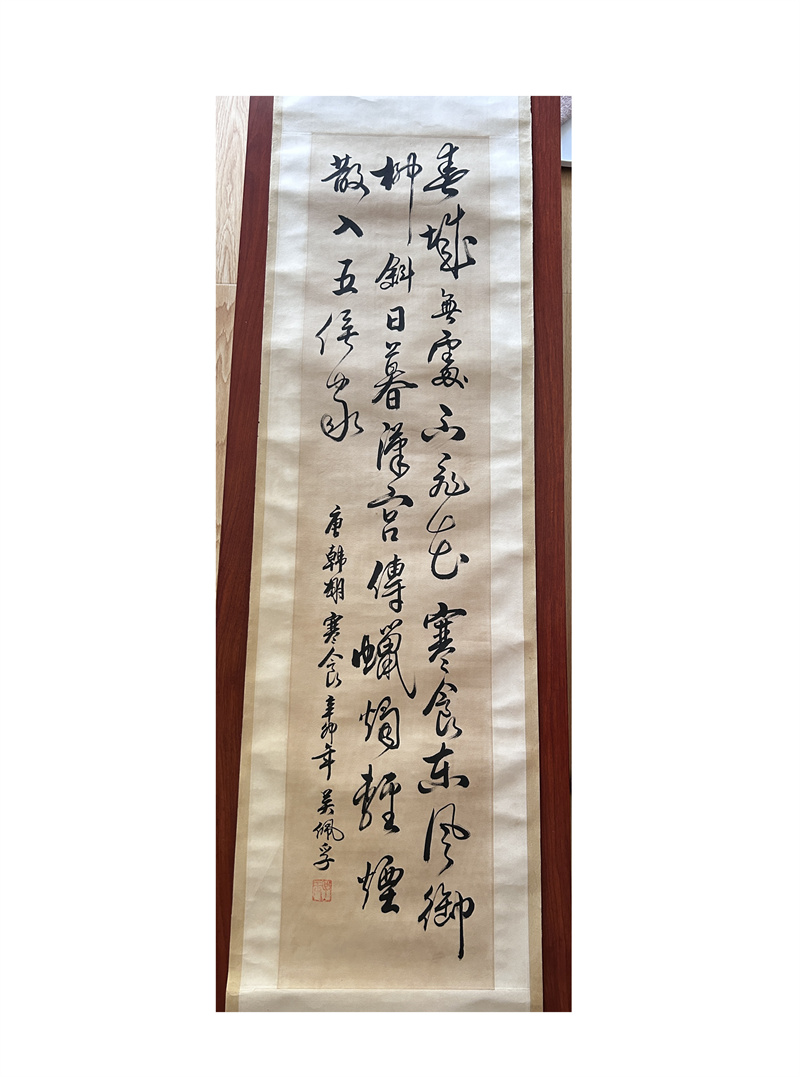 春城無處不飛花寒食東風御
柳斜日暮漢宮傳蠟燭輕煙
散入五侯家
唐韓翃寒食辛卯年吳佩孚